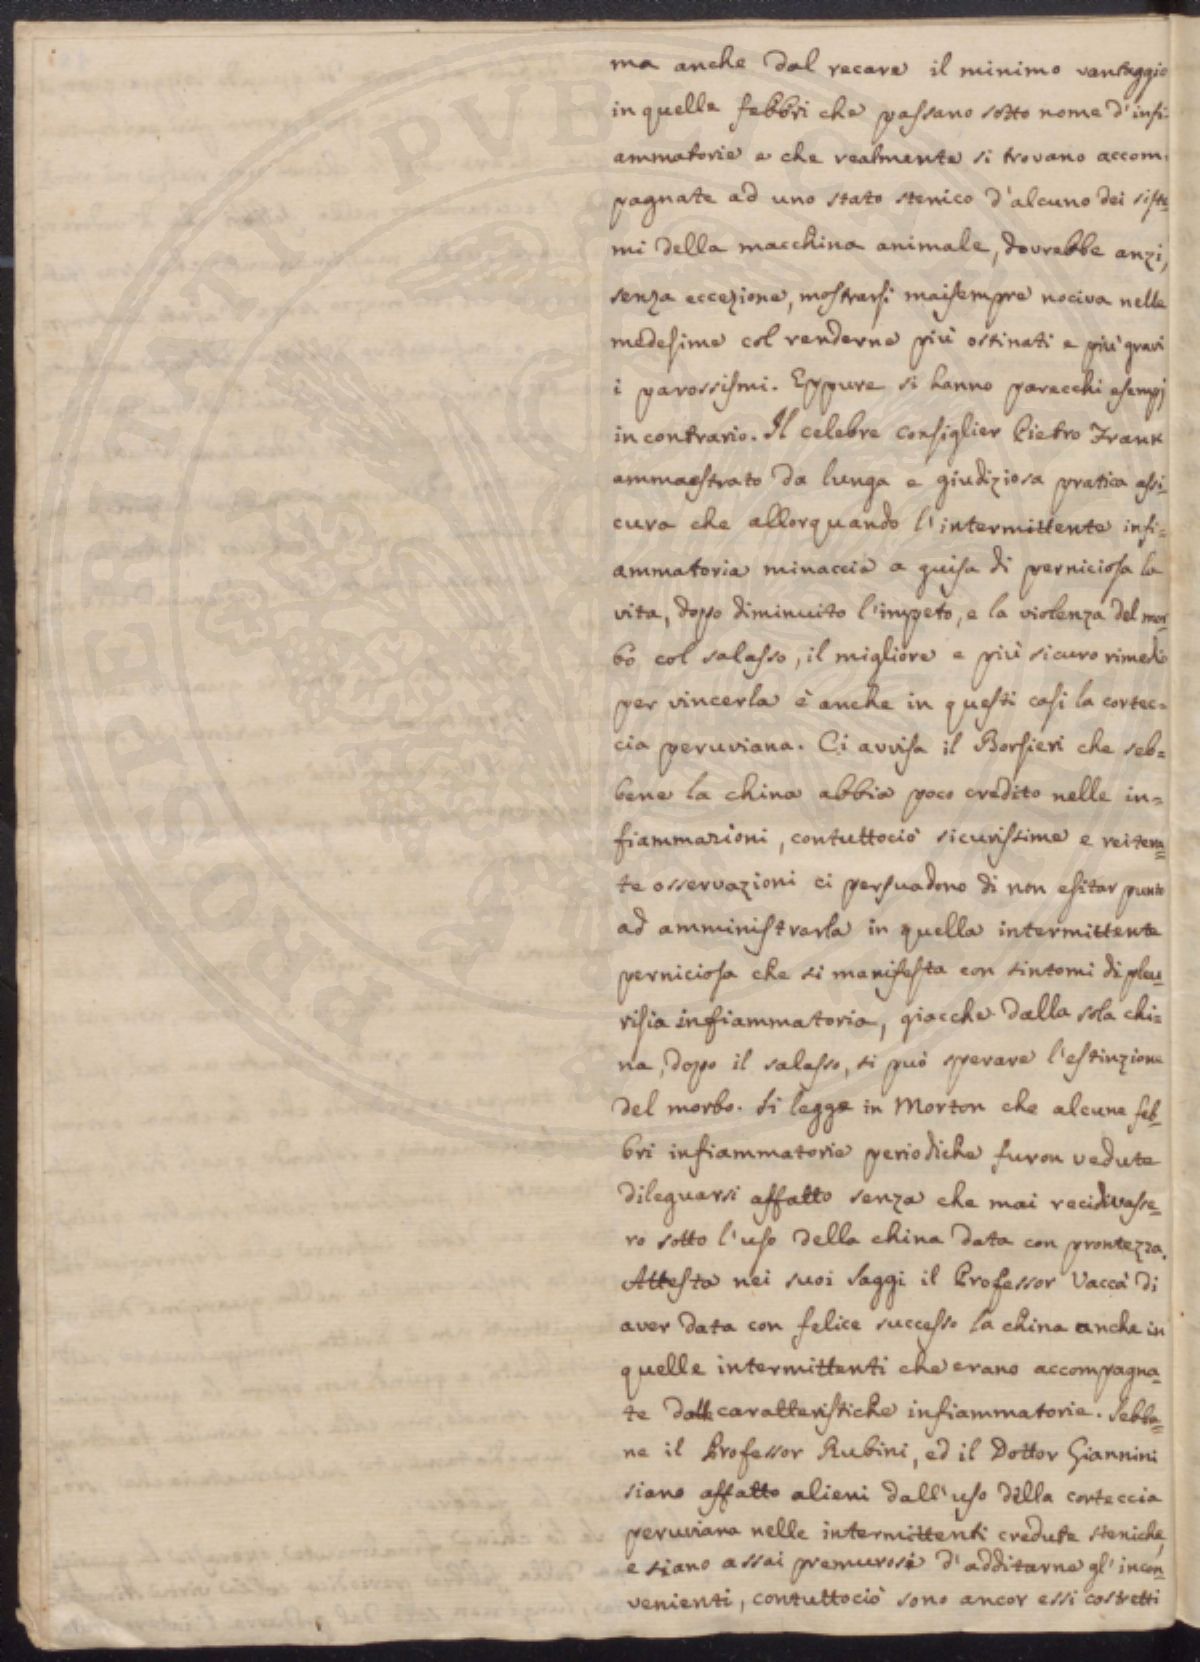 ma anche dal recare il minimo vantaggio
in quelle febbri che passano sotto nome d'infi-
ammatorie e che realmente si trovano accom-
pagnate ad uno stato stenico d'alcuno dei siste-
mi della macchina animale, dovrebbe anzi,
senza eccezione, mostrarsi maisempre nociva nelle
medesime col renderne più ostinati e più gravi
i parossismi. Eppure si hanno parecchi esempj
in contrario. Il celebre consiglier Pietro Frank
ammaestrato da lunga e giudiziosa pratica assi-
cura che allorquando l'intermittente infi=
ammatoria minaccia a guisa di perniciosa la
vita, dopo diminuito l'impeto, e la violenza del mor-
bo col salasso, il migliore e più sicuro rimedio
per vincerla è anche in questi casi la cortec=
cia peruviana. Ci avvisa il Borsieri che seb=
bene la china abbia poco credito nelle in=
fiammazioni, contuttociò sicurissime e reitera=
te osservazioni ci persuadono di non esitar punto
ad amministrarla in quella intermittente
perniciosa che si manifesta con sintomi di pleu-
risia infiammatoria, giacche dalla sola chi=
na, dopo il salasso, si può sperare l'estinzione
del morbo. Si legge in Morton che alcune feb-
bri infiammatorie periodiche furon vedute
dileguarsi affatto senza che mai recidivasse-
ro sotto l'uso della china data con prontezza.
Attesta nei suoi Saggi il Professor Vaccà di
aver data con felice successo la china anche in
quelle intermittenti che erano accompagna-
te dalle caratteristiche infiammatorie. Sebbe=
ne il Professor Rubini, ed il Dottor Giannini
siano affatto alieni dall'uso della corteccia
peruviana nelle intermittenti credute steniche,
e siano assai premurosi d'additarne gl'incon-
venienti, contuttociò sono ancor essi costretti
PUBLIC